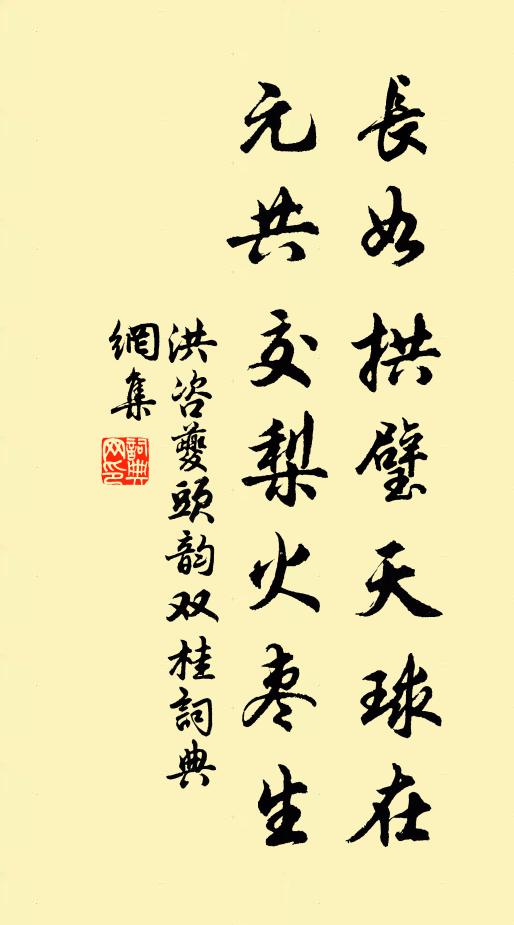 長如拱璧天球在
元共交梨火枣生
洪咨夔頭韵双桂詞典
網集
詞典
网印